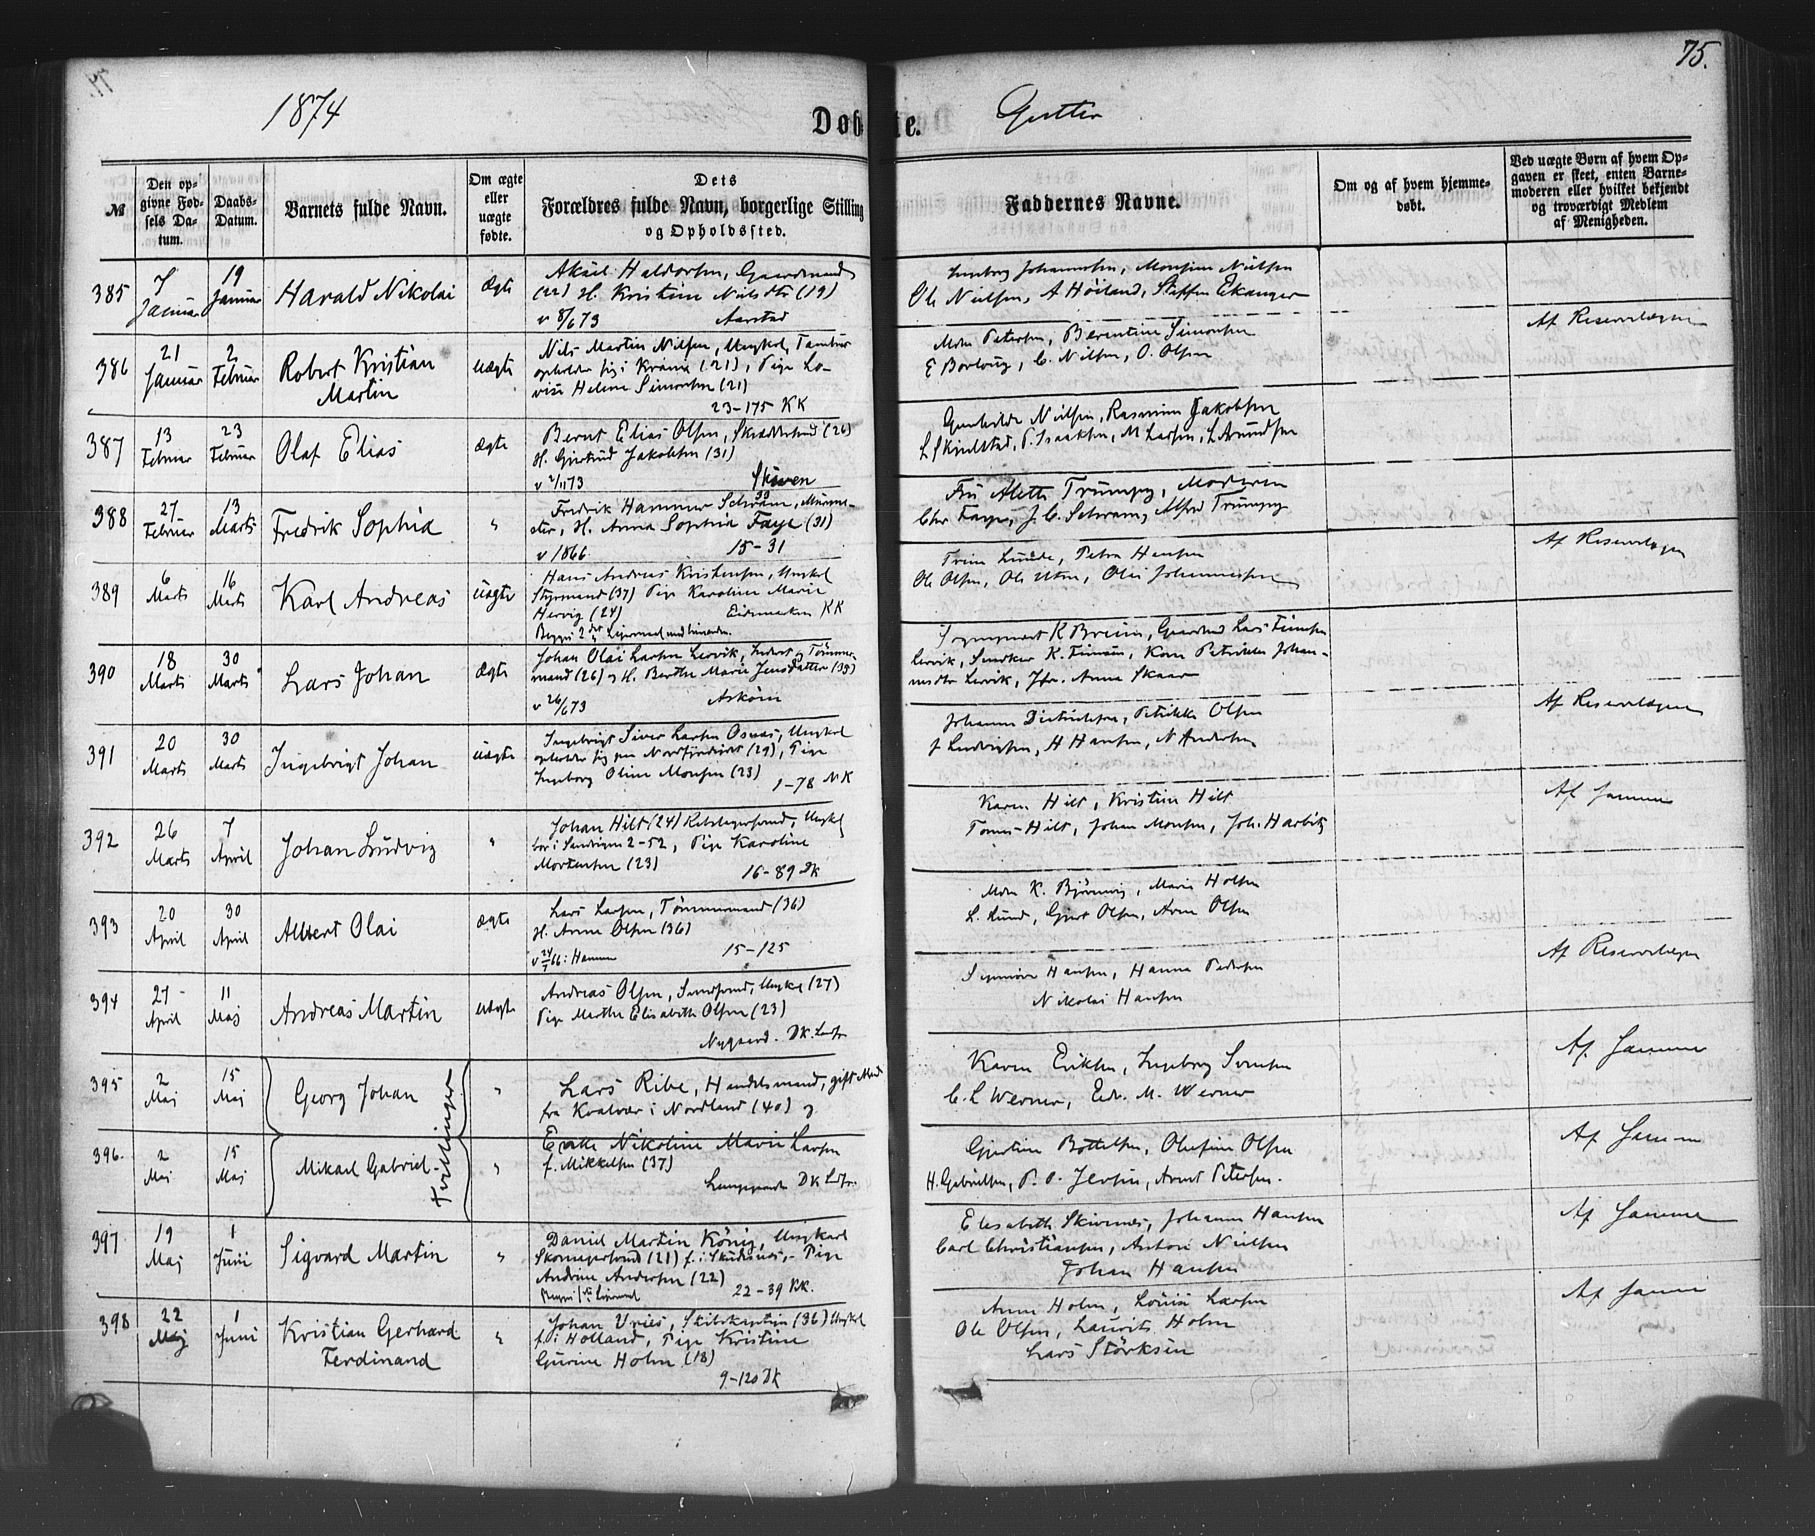 74.
75.
1874
Døbte.
Gutter
№
Den opgivne Fødsels Datum.
Daabs-Datum.
Barnets fulde Navn.
Om ægte eller uægte fødte.
Dets Forældres fulde Navn, borgerlige Stilling og Opholdssted.
Faddernes Navne.
Om og af hvem hjemmedøbt.
Ved uægte Børn af hvem Opgaven er skeet, enten Barnemoderen eller hvilket bekjendt og troværdigt Medlem af Menigheden.
385 7 Januar 19 Januar Harald Nikolai Ægte
Aksel Haldorsen, Gaardmand
(22) H. Kristine Nilsdtr (19)
v 8/6 73 Aarstad
Ingeborg Johannesen, Monsine Nielsen
Ole Nielsen, A Høiland, Steffen Ekanger
386 21 Januar 2 Februar Robert Kristian
Martin uægte
Nils Martin Nilsen, Ungkel, Tambur
opholder sig i (21), Pige Lo-
vise Helene Simonsen (21)
23-175 KK
Mdm Petersen, Berentine Simonsen
E Borlaug, C. Nilsen, O. Olsen
Af Reservelægen
387 13 Februar 23 Februar Olaf Elias ægte
Bernt Elias Olsen, (26)
H. Gjertrud Jakobsen (31)
v 2/11 73 Skiven
Gunhilde Nielsen, Rasmine Jakobsen
L Skjelstad, P. Isaaksen, M Larsen, L Amundsen
388 27 Februar 13 Marts Fredrik Sophia "
Fredrik Hammer Schram, 30 Murme-
ster, H. Anna Sophia Faye (31)
v 1866 15-31
Fru Alette Trumpy, Moderen
Chr Faye, J. C. Schram, Alfred Trumpy
389 6 Marts 16 Marts Karl Andreas uægte
Hans Andreas Kristensen, Ungkel
Styrmand (37) Pige Karoline Marie
Hervig (24) Eidemarken KK
Begges 2det Leiermaal med hinanden.
Trine Lunde, Petra Hansen
Ole Olsen, Ole Utne, Olai Johannessen
Af Reservelægen
390 18 Marts 30 Marts Lars Johan ægte
Johan Olai Larsen Lervik, Inderst og Tømmer-
mand (26) og H. Berthe Marie Jensdatter (39)
v 26/6 73 Askøen
K Bruun, Gaardmd Lars
Lervik, Snedker K. Kone Petrikke Johan-
nesdtr Lervik, Jfr. Anna Skaar
391 20 Marts 30 Marts Ingebrigt Johan uægte
Ingebrigt Siver Larsen Osnes, Ungkel
opholder sig paa Nordfjordeidet (29), Pige
Ingeborg Oline Monsen (23)
1-78 NK
Johanne Dietrichsen, Petrikke Olsen
J Ludvigsen, H Hansen, N Andersen
Af Reservelægen
392 26 Marts 7 April Johan Ludvig "
Johan Hilt (24) Rebslagersvend, Ungkel
bor i Sandvigen 2-52, Pige Karoline
Mortensen (23)
16-89 DK
Karen Hilt, Kristine Hilt
Tomas Hilt, Johan Monsen, Joh. Harbitz
Af Samme
393 20 April 30 April Albert Olai ægte
Lars Larsen, Tømmermand (36)
H. Anne Olsen (36)
v 24/5 66 i Hammer 15-125
Mdm K. Bjørnvig, Marie Holsen
L. Lund, Gjert Olsen, Arne Olsen
394 27 April 11 Maj Andreas Martin uægte
Andreas Olsen, Ungkel (27)
Pige Marthe Elisabeth Olsen (23)
Nygaard. DK.
Hansen, Hanna Pedersen
Nikolai Hansen
Af Reservelægen
395 2 Maj 15 Maj Georg Johan "
Tvillinger
Lars Ribe, Handelsmand, gift Mand
fra Kvalvær i Nordland (40) og
Karen Eriksen, Ingeborg Svensen
C. L Werner, Edv. M. Werner
Af Samme
396. 2 Maj 15 Maj Mikael Gabriel "
Enke Nikoline Marie Larsen
f. Mikkelsen (37)
Lungegaarden DK
Gjertine Bottolfsen, Olufine Olsen
H. Gabrielsen, P. O. Jensen, Arent Petersen.
Af Samme
397 19 Maj 1 Juni Sigvard Martin "
Daniel Martin König, Ungkarl
Skomagersvend (21) f. i Skudesnes, - Pige
Andrine Andersen (22)
Begges 1ste Leiermaal 22-39 KK.
Elisabeth Skivenes, Johanne Hansen
Carl Christiansen, Anton Nielsen
Johan Hansen
Af Samme
398 22 Maj 1 Juni Kristian Gerhard
Ferdinand "
Johan Vries, Skibskaptein (36) Ungkel
f. i Holland, Pige Kristine
Gurine Holm (18)
9-120 DK
Anne Holm, Louise Larsen
Ole Olsen, Laurits Holm
Lars Størksen
Af Samme